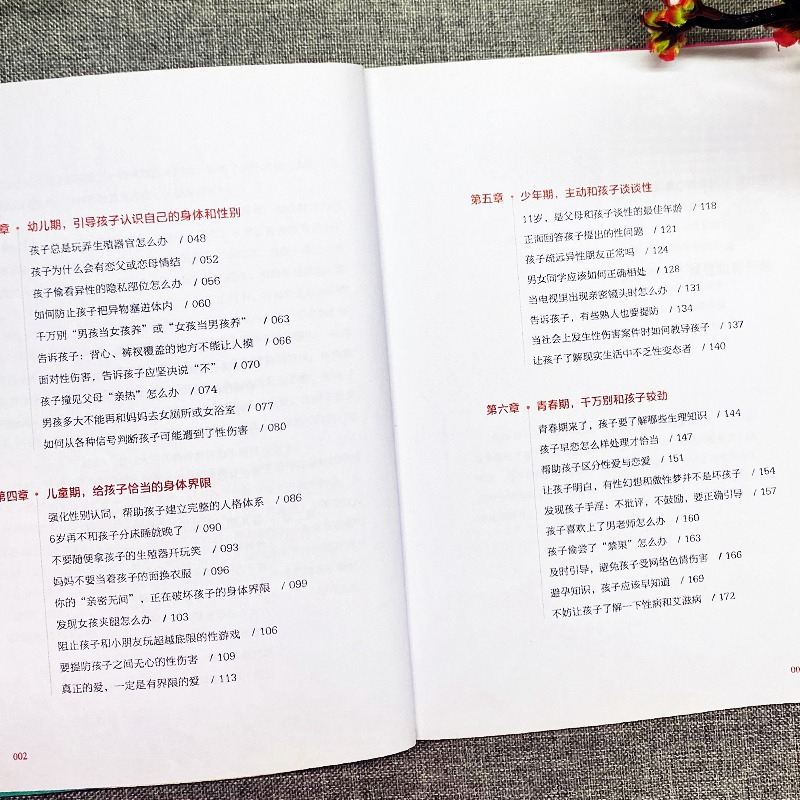 章 · 幼儿期，引导孩子认识自己的身体和性别
孩子总是玩弄生殖器官怎么办 / 048
孩子为什么会有恋父或恋母情结 / 052
孩子偷看异性的隐私部位怎么办 / 056
如何防止孩子把异物塞进体内 / 060
千万别“男孩当女孩养”或“女孩当男孩养” / 063
告诉孩子：背心、裤衩覆盖的地方不能让人摸 / 066
面对性伤害，告诉孩子应坚决说“不” / 070
孩子撞见父母“亲热”怎么办 / 074
男孩多大不能再和妈妈去女厕所或女浴室 / 077
如何从各种信号判断孩子可能遭到了性伤害 / 080
第四章 · 儿童期，给孩子恰当的身体界限
强化性别认同，帮助孩子建立完整的人格体系 / 086
6岁再不和孩子分床睡就晚了 / 090
不要随便拿孩子的生殖器开玩笑 / 093
妈妈不要当着孩子的面换衣服 / 096
你的“亲密无间”，正在破坏孩子的身体界限 / 099
发现女孩夹腿怎么办 / 103
阻止孩子和小朋友玩超越底限的性游戏 / 106
要提防孩子之间无心的性伤害 / 109
真正的爱，一定是有界限的爱 / 113
002
第五章 · 少年期，主动和孩子谈谈性
11岁，是父母和孩子谈性的最佳年龄 / 118
正面回答孩子提出的性问题 / 121
孩子疏远异性朋友正常吗 / 124
男女同学应该如何正确相处 / 128
当电视里出现亲密镜头时怎么办 / 131
告诉孩子，有些熟人也要提防 / 134
当社会上发生性伤害案件时如何教导孩子 / 137
让孩子了解现实生活中不乏性变态者 / 140
第六章 · 青春期，千万别和孩子较劲
青春期来了，孩子要了解哪些生理知识 / 144
孩子早恋怎么样处理才恰当 / 147
帮助孩子区分性爱与恋爱 / 151
让孩子明白，有性幻想和做性梦并不是坏孩子 / 154
发现孩子手淫：不批评，不鼓励，要正确引导 / 157
孩子喜欢上了男老师怎么办 / 160
孩子偷尝了“禁果”怎么办 / 163
及时引导，避免孩子受网络色情伤害 / 166
避孕知识，孩子应该早知道 / 169
不妨让孩子了解一下性病和艾滋病 / 172
00